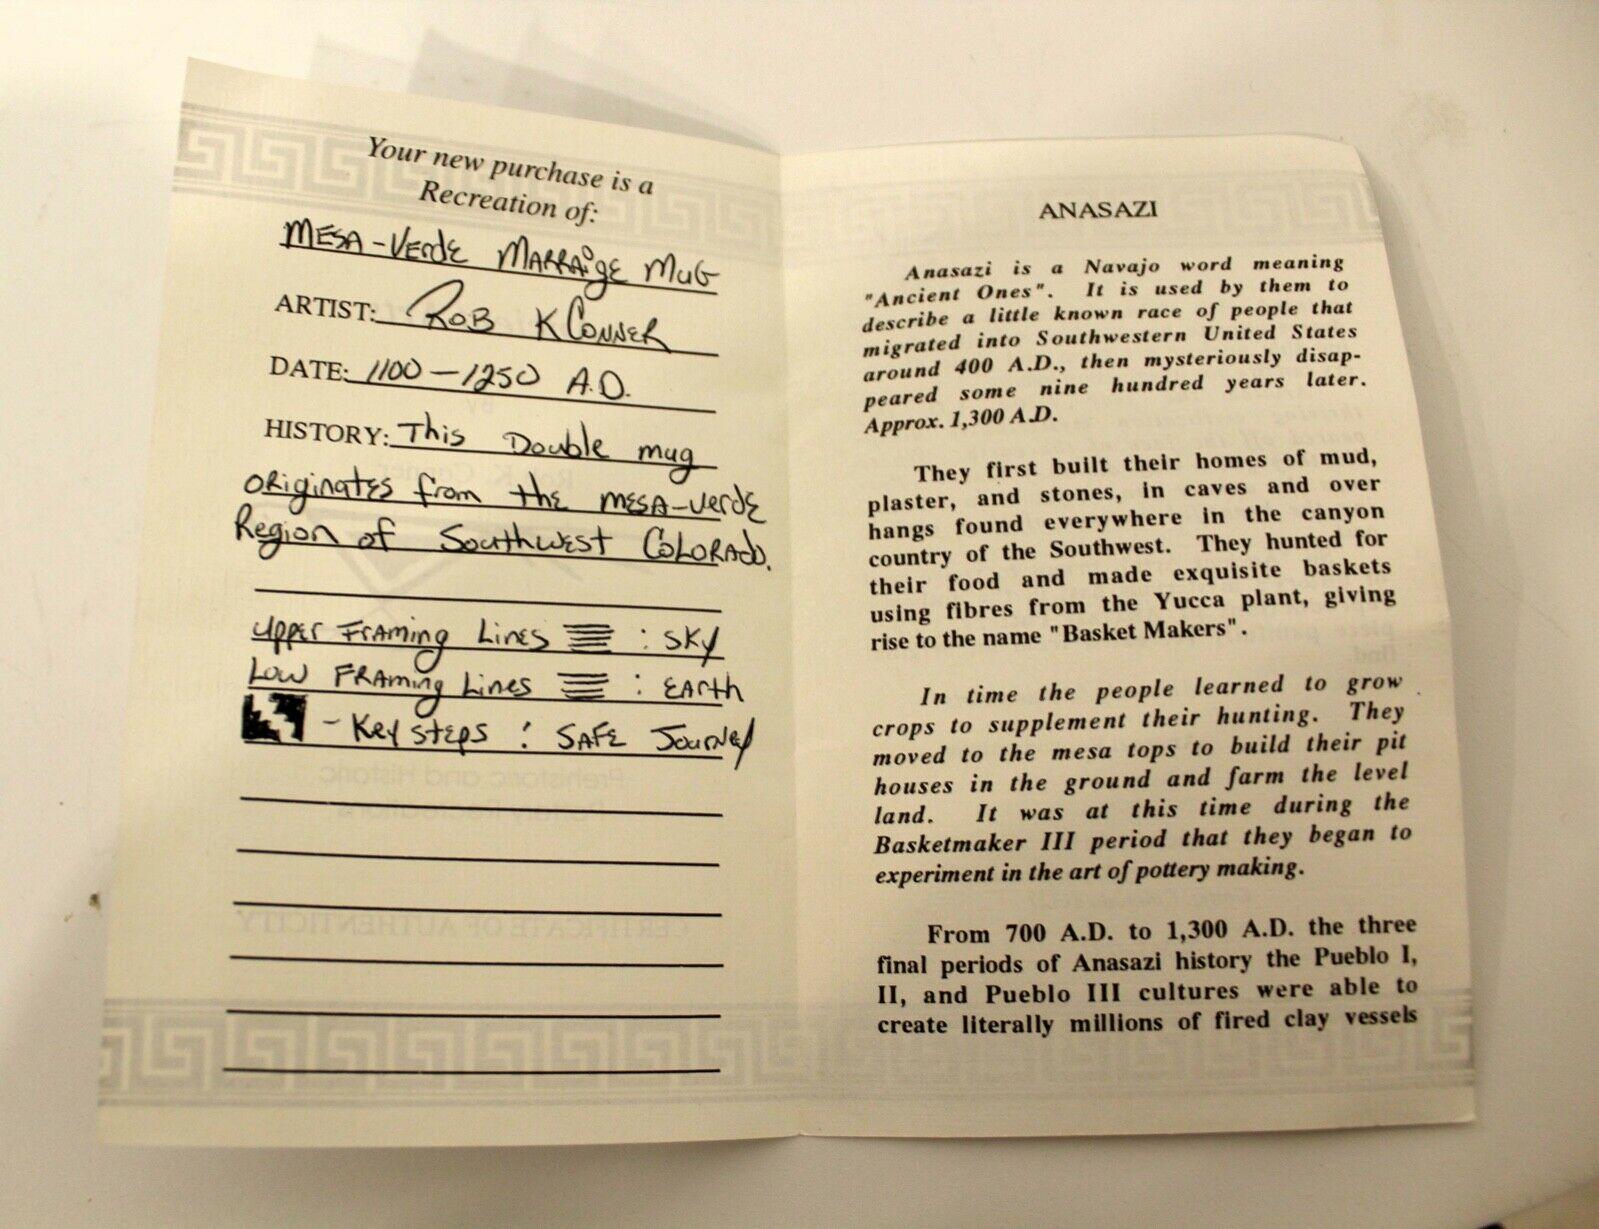 Your new purchase is a
Recreation of:
MESA-Verde MARRAiGE MUG
ARTIST: ROB K CONNER
DATE: 1100-1250 A.D.
HISTORY: This Double mug
originates from the mesa-verde
Region of Southwest COLORADO.
upper Framing Lines : SKY
Low FRAming Lines : EARth
- Key steps : SAFE Journey
CERTIFICATE OF AUTHENTICITY
ANASAZI
Anasazi is a Navajo word meaning
"Ancient Ones". It is used by them to
describe a little known race of people that
migrated into Southwestern United States
around 400 A.D., then mysteriously disap-
peared some nine hundred years later.
Approx. 1,300 A.D.
They first built their homes of mud,
plaster, and stones, in caves and over
hangs found everywhere in the canyon
country of the Southwest. They hunted for
their food and made exquisite baskets
using fibres from the Yucca plant, giving
rise to the name "Basket Makers".
In time the people learned to grow
crops to supplement their hunting. They
moved to the mesa tops to build their pit
houses in the ground and farm the level
land. It was at this time during the
Basketmaker III period that they began to
experiment in the art of pottery making.
From 700 A.D. to 1,300 A.D. the three
final periods of Anasazi history the Pueblo I,
II, and Pueblo III cultures were able to
create literally millions of fired clay vessels